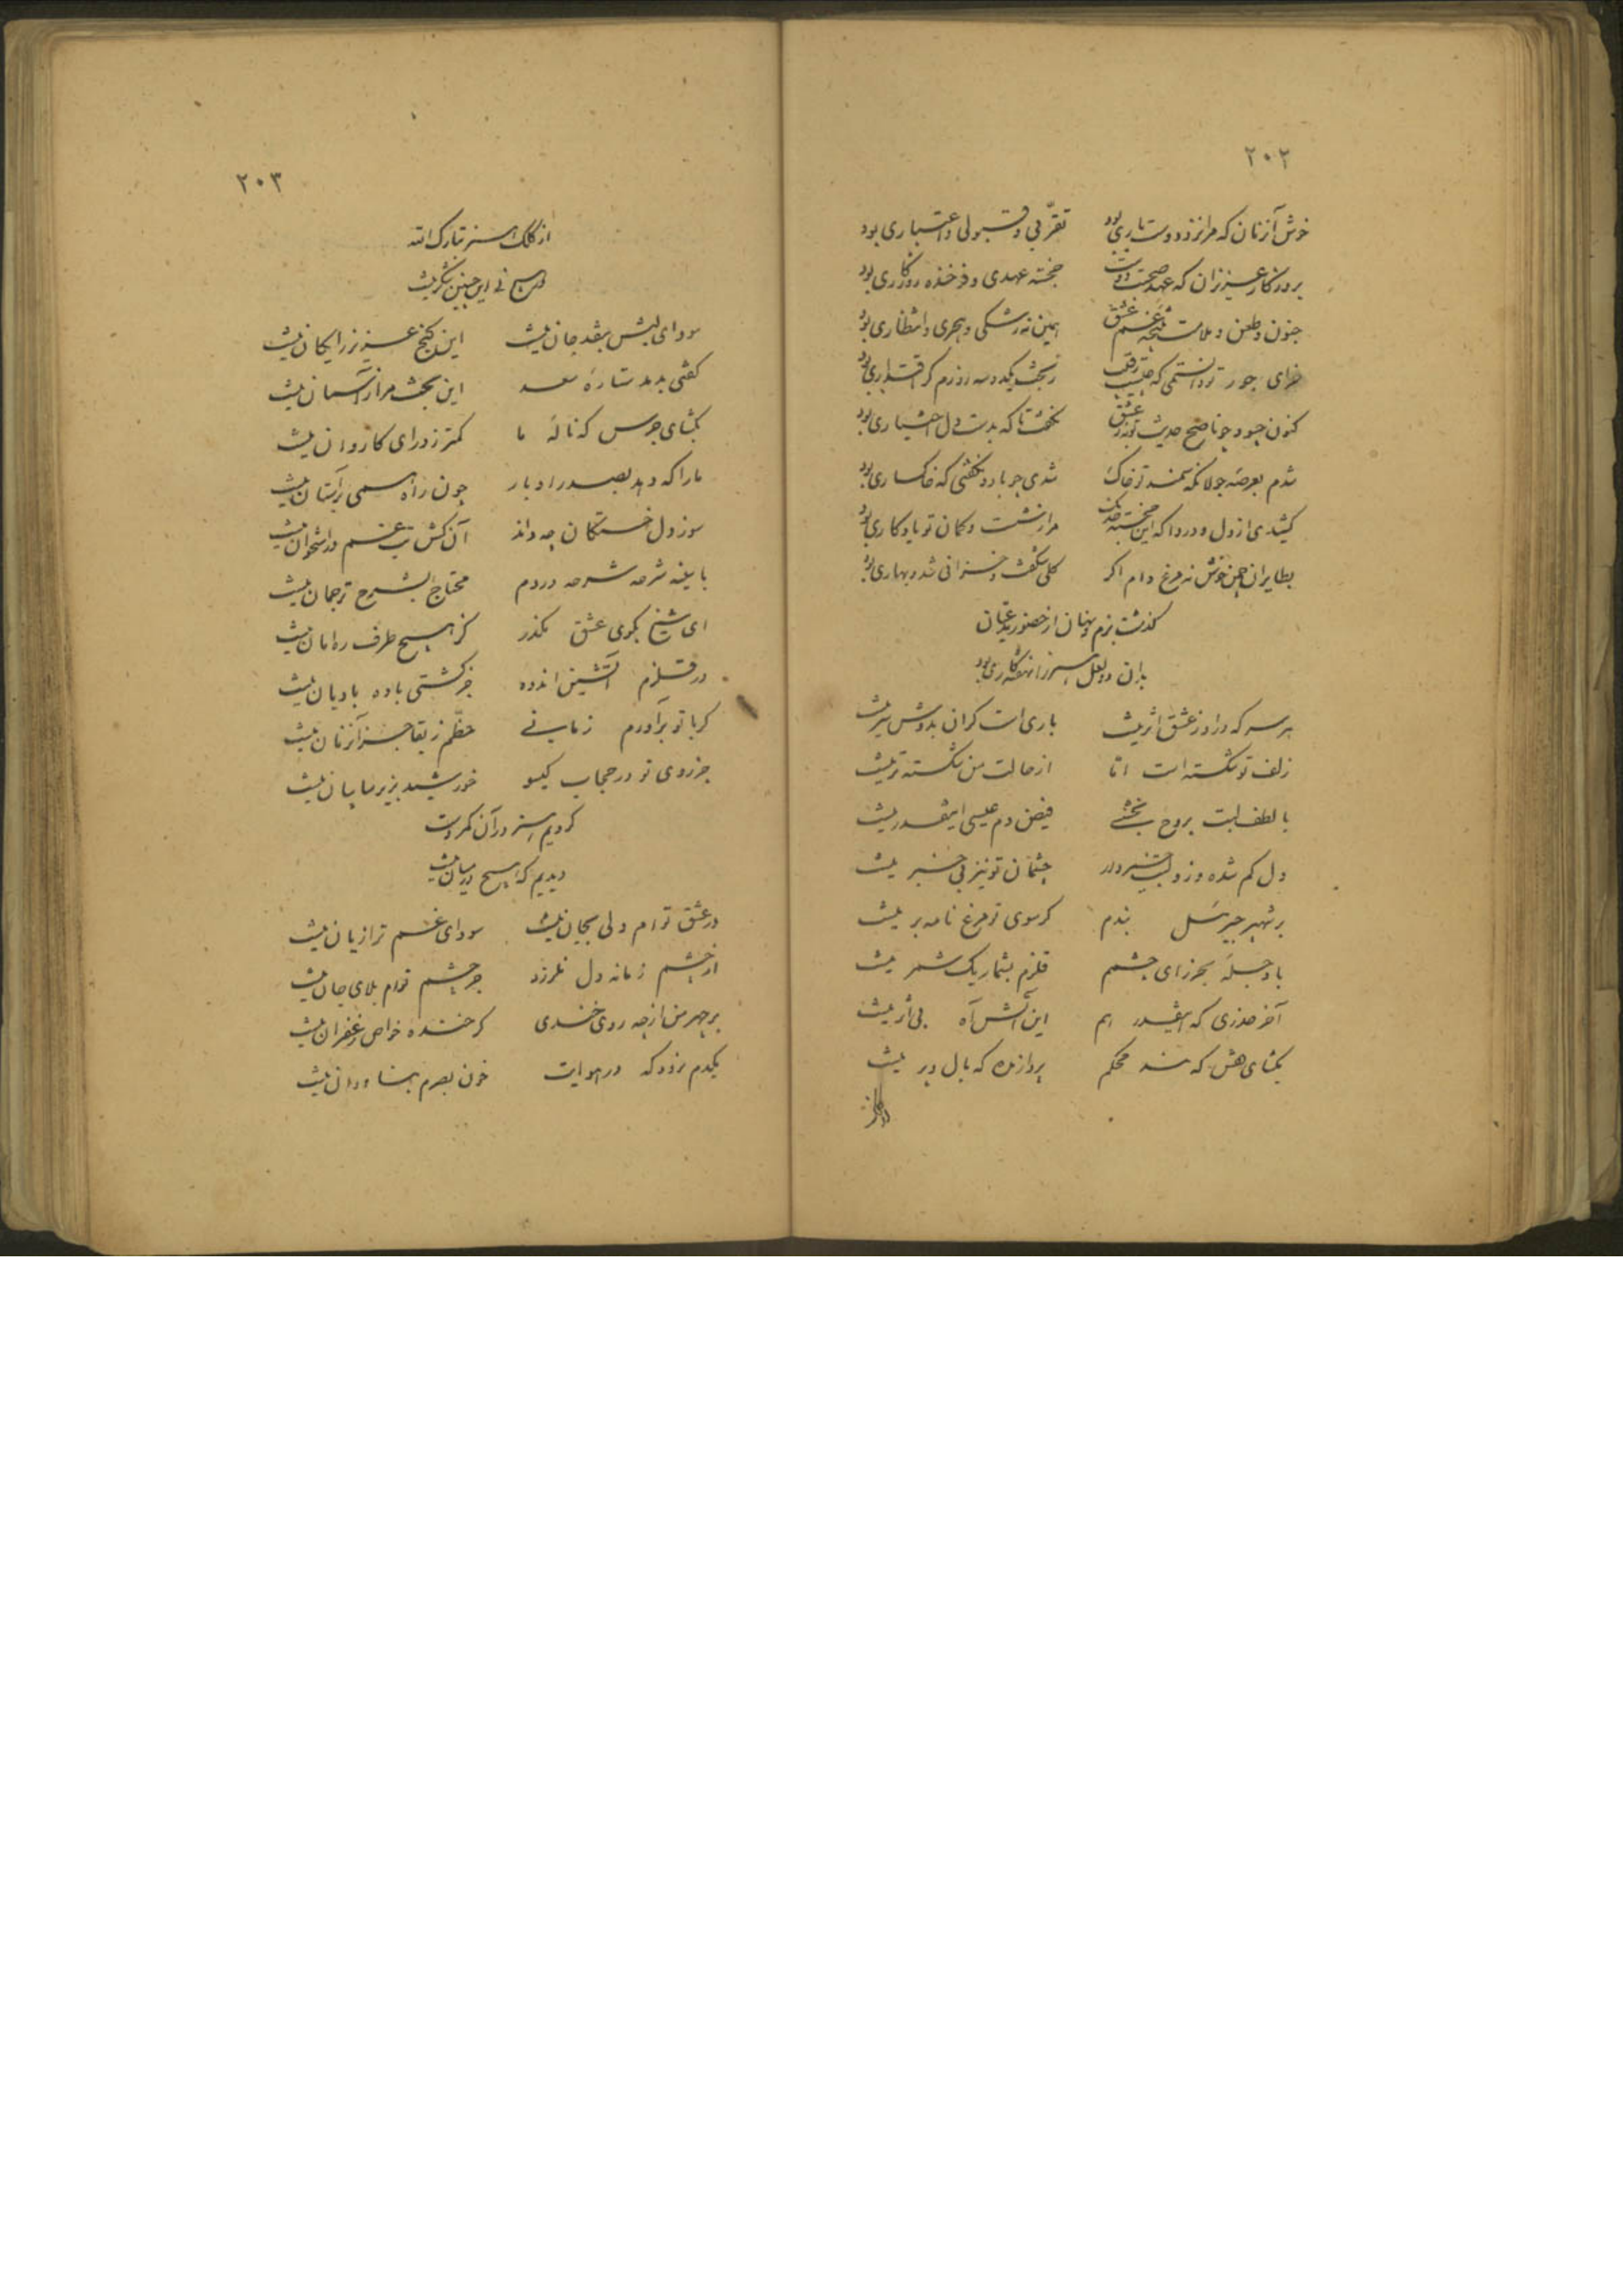 ۲۰۲
خوش آنزمان که مرا نزد دوست باری بود تقربی و قبولی و اعتباری بود
بروزکار عزیزان که عهد صحبت دوست خجسته عهدی و فرخنده روزکاری بود
جنون و طعن و ملامت نتیجه غم عشق همین نه رشکی و هجری و انتظاری بود
سزای جور تو دانستمی که چیست رقیب ز بخت یکدوسه روزم کر اقتداری بود
کنون چسود چو ناصح حدیث توبه ز عشق نخست تا که بدست دل اختیاری بود
شدم بعرصه جولانکه سمند تو خاک شدی چو باد و نکفتی که خاکساری بود
کشیدی از دل و دردا که این خجسته خدنک مرا ز شست و کمان تو یادکاری بود
بطایران چمن خوش نه مرغ دام اکر کلی شکفت و خزانی شد و بهاری بود
کذشت بزم و نهان از حضور مدعیان
بدان دو لعل
هر سر که در او ز عشق اثر نیست باری است کران بدوش سر نیست
زلف تو شکسته است اما از حالت من شکسته تر نیست
با لطف لبت بروح بخشی فیض دم عیسی اینقدر نیست
دل کم شده وز دلت خبردار چشمان تو نیز بی خبر نیست
بر شهپر جبرئیل بندم کر سوی تو مرغ نامه بر نیست
با دجله بحرزای چشم قلزم بشمار یک شمر نیست
آخر حذری که اینقدر هم این آتش آه بی اثر نیست
بکشای قفس که بند محکم پرداز مرا که بال و پر نیست
۲۰۳
از کلک تبارک الله
در هیچ نی این چنین شکر نیست
سودای لبش بنقد جان نیست این کنج عزیز رایکان نیست
کفتی بدمد ستاره سعد این بخت مرا ز آسمان نیست
بکشای جرس که ناله ما کمتر ز درای کاروان نیست
ما را که دهد بصدر او بار چون راه همی بر آستان نیست
سوز دل خستکان چه داند آن کش تب غم در استخوان نیست
با سینه شرحه شرحه دردم محتاج بشرح ترجمان نیست
ای شیخ بکوی عشق مکذر کز هیچ طرف ره امان نیست
در قلزم آتشین اندوه جز کشتی باده بادبان نیست
کر با تو برآورم زمانی حظم ز بقا جز آنزمان نیست
جز روی تو در حجاب کیسو خورشید بزیر سایبان نیست
کردیم در آن کمر دست
دیدیم که هیچ در میان نیست
در عشق توام دلی بجان نیست سودای غم ترا زیان نیست
از چشم زمانه دل نلرزد جز چشم توام بلای جان نیست
بر چهر من از چه روی خندی کر خنده خواص زعفران نیست
یکدم نرود که در هوایت خون بصرم روان نیست